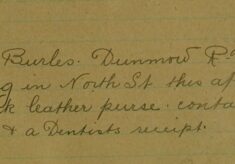 Burles. Dunmow Rd
g in North St this af
ck leather purse. conta
& a Dentists reciept.